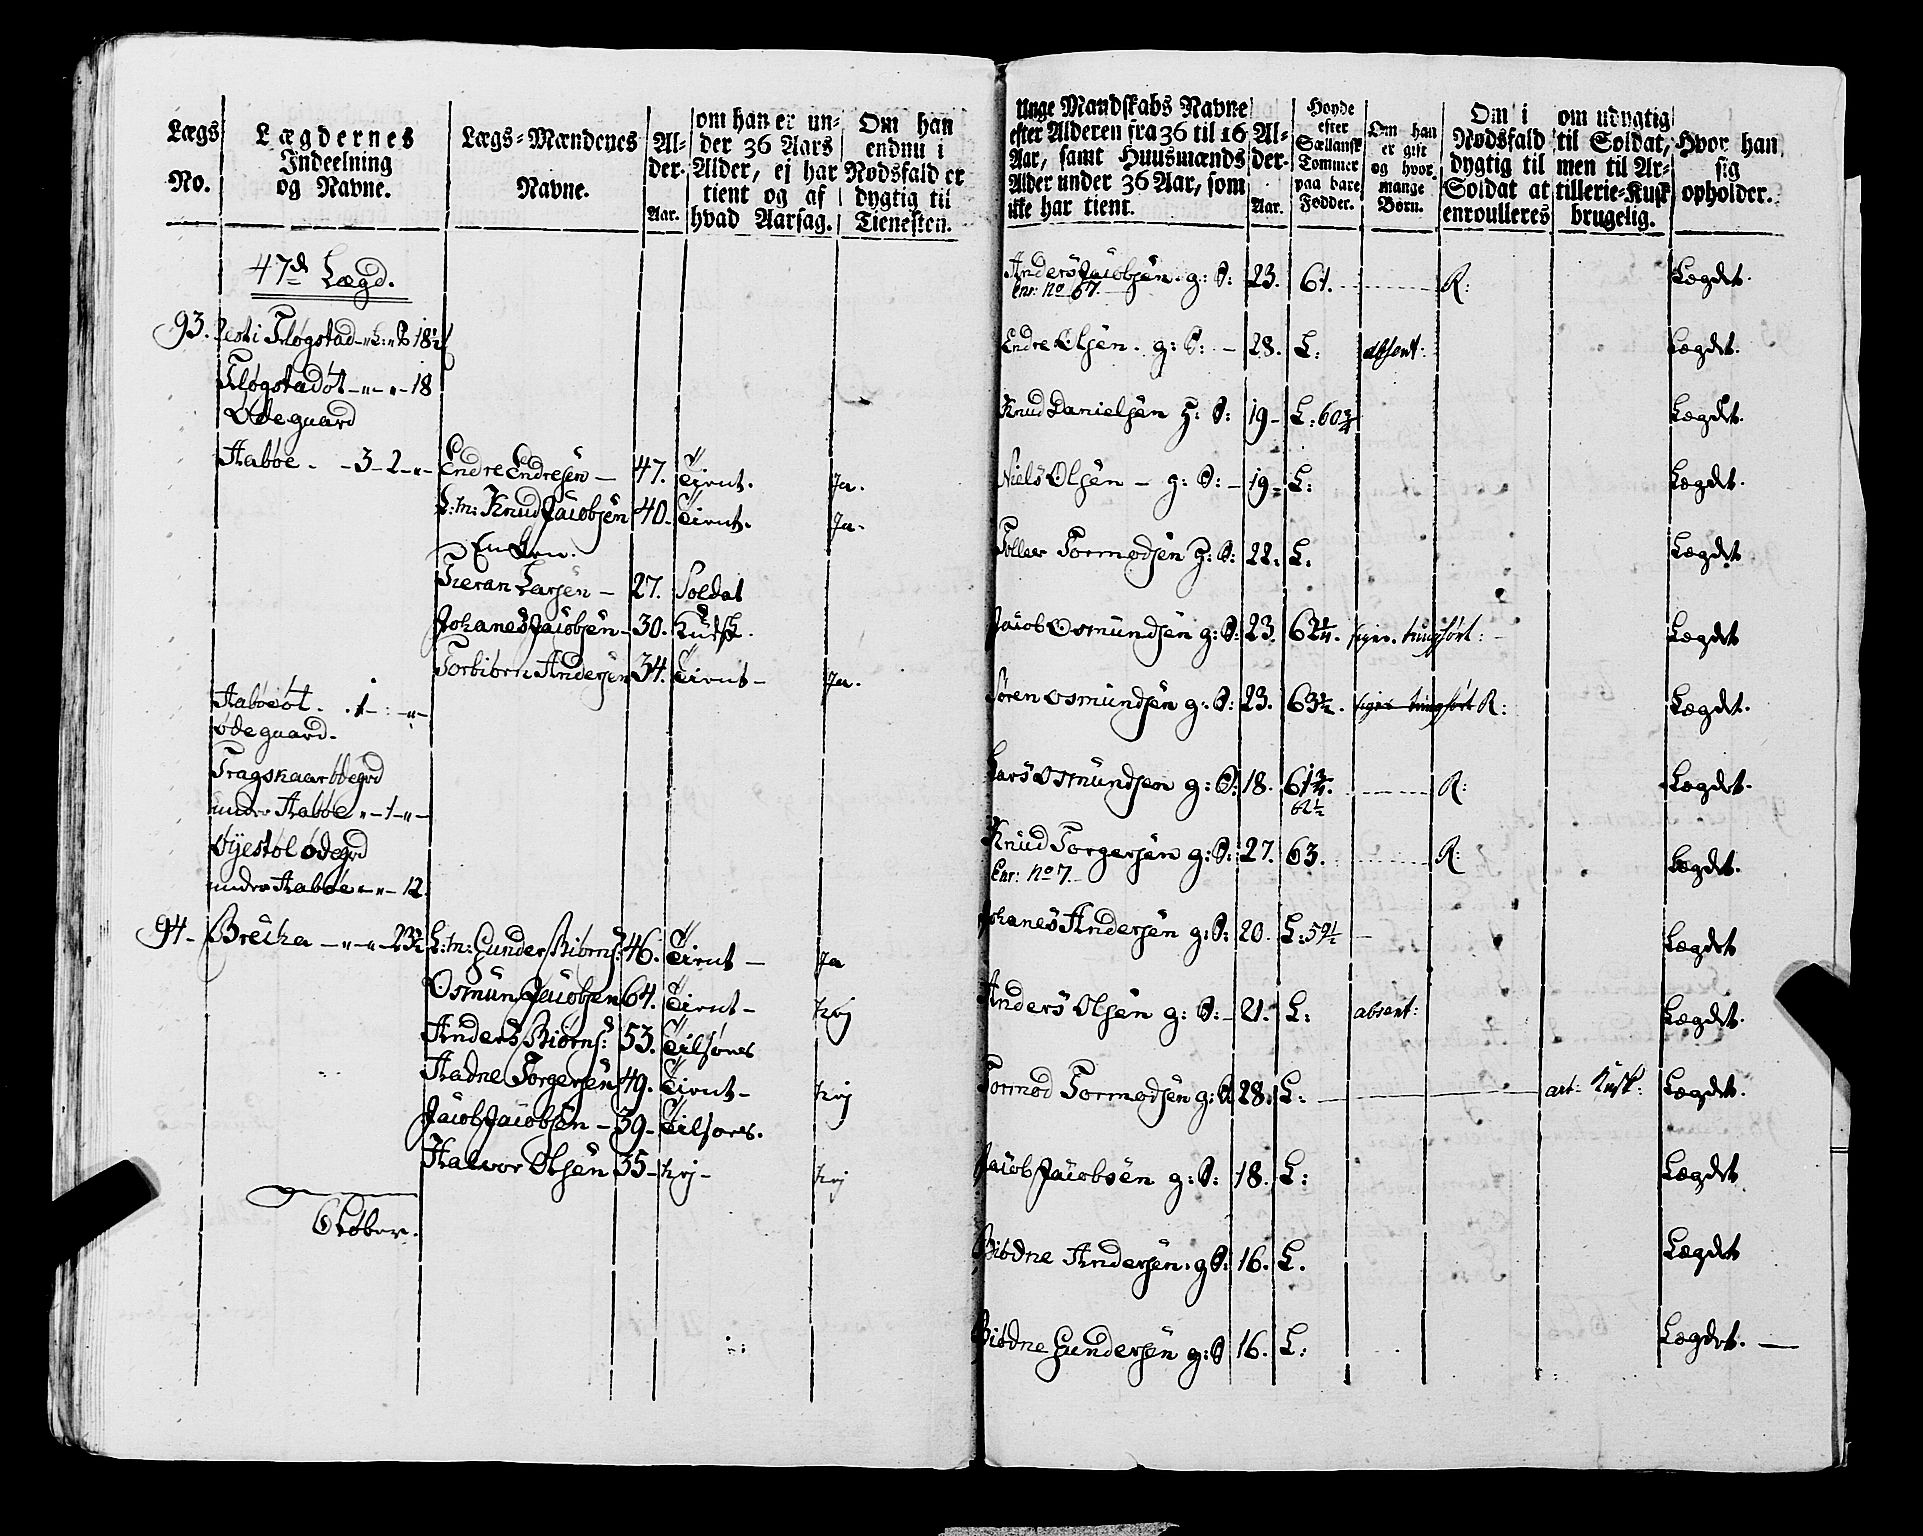 Lægs No.
Lægdernes Indeelning og Navne.
Lægs-Mændenes Navne.
Alder. Aar.
om han er under 36 Aars Alder, ej har tient og af hvad Aarsag.
Om han endnu i Nødsfald er dygtig til Tienesten.
47de Lægd.
93.
Fløgstad 18½
Fløgstad øt 18
Ødeguard
Aabøe. 3 - 2 -
Endre Endresen 47. Tient. Ja.
L:m: Knud Jacobsen 40. Tient. Ja.
Enken.
Tieran Larsen 27. Soldat
Johanes Jacobsen 30. Kudsk.
Torbiörn Andersen 34. Tient Ja.
Aabøe øt. 1
ødeguard.
Tragskaar ødegrd
under Aabøe 1
Øyestøl ødegrd
under Aabøe 12
94. Breika 23½
L:m: Gunder Biörns: 46. Tient Ja
Osmun Jacobsen 64. Tient Nej
Anders Biörns: 53. Tilfores
Aadne Torgersen 49. Tient Nej
Jacob Jacobsen 39 Tilfores.
Halvor Olsen 35 Nej Nej
unge Mandskabs Navne efter Alderen fra 36 til 16 Aar, samt Huusmænds Alder under 36 Aar, som ikke har tient.
Alder. Aar.
Høyde efter Sællansk Tommer paa bare Fødder.
Om han er gift og hvor mange Børn.
Om i Nødsfald dygtig til Soldat at enroulleres
om udygtig til Soldat, men til Artillerie-Kusk brugelig.
Hvor han sig opholder.
Anders Jacobsen. g: S: 23. 61. R: Lægdet.
Enr: No 67.
Endre Olsen. g: S: 28. L: absent: Lægdet.
Knud Danielsen H: S: 19 L: 60¾ Lægdet.
Niels Olsen g: S: 19 L: Lægdet.
Tollev Tormodsen H: S: 22. L: Lægdet
Jacob Osmundsen g: S: 23. 62¼. siger tungført: Lægdet
Søren Osmundsen g: S: 23. 63½. siger tungført R: Lægdet.
Lars Osmundsen g: S: 18. 61¾. R: Lægdet.
62½
Knud Torgersen g: S: 27. 63. R: Lægdet.
Enr: No 7.
Johanes Andersen g: S: 20. L: 59½ Lægdet
Anders Olsen g: S: 21. L: absent: Lægdet.
Tormod Tormodsen g: S 28. L: art: Kusk: Lægdet.
Jacob Jacobsen g: S: 18. L: Lægdet
Biödne Andersen. g S: 16. L. Lægdet
Biödne Gundersen g: S 16. L: Lægdet.